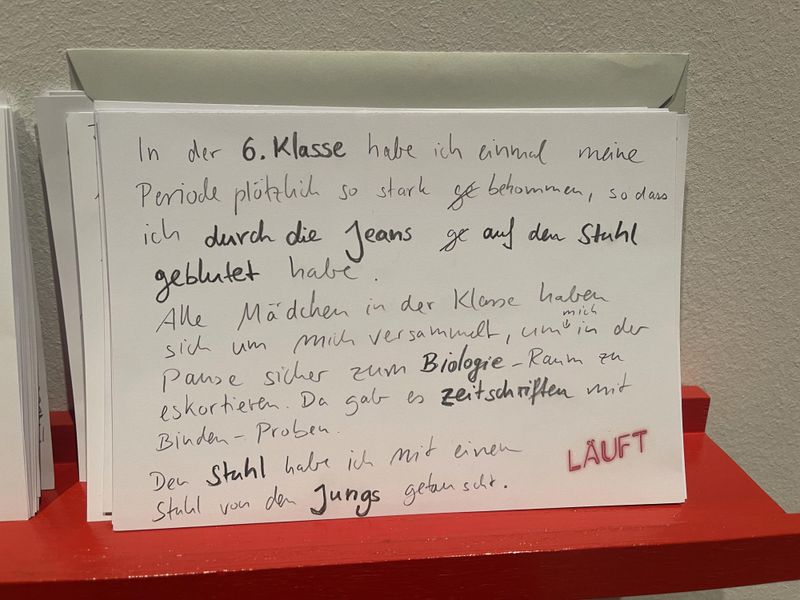 In der 6. Klasse habe ich einmal meine
Periode plötzlich so stark ge bekommen, so dass
ich durch die Jeans ge auf den Stuhl
geblutet habe.
Alle Mädchen in der Klasse haben
sich um mich versammelt, um mich in der
Pause sicher zum Biologie-Raum zu
eskortieren. Da gab es Zeitschriften mit
Binden-Proben.
Den Stuhl habe ich mit einem
Stuhl von den Jungs getauscht.
LÄUFT